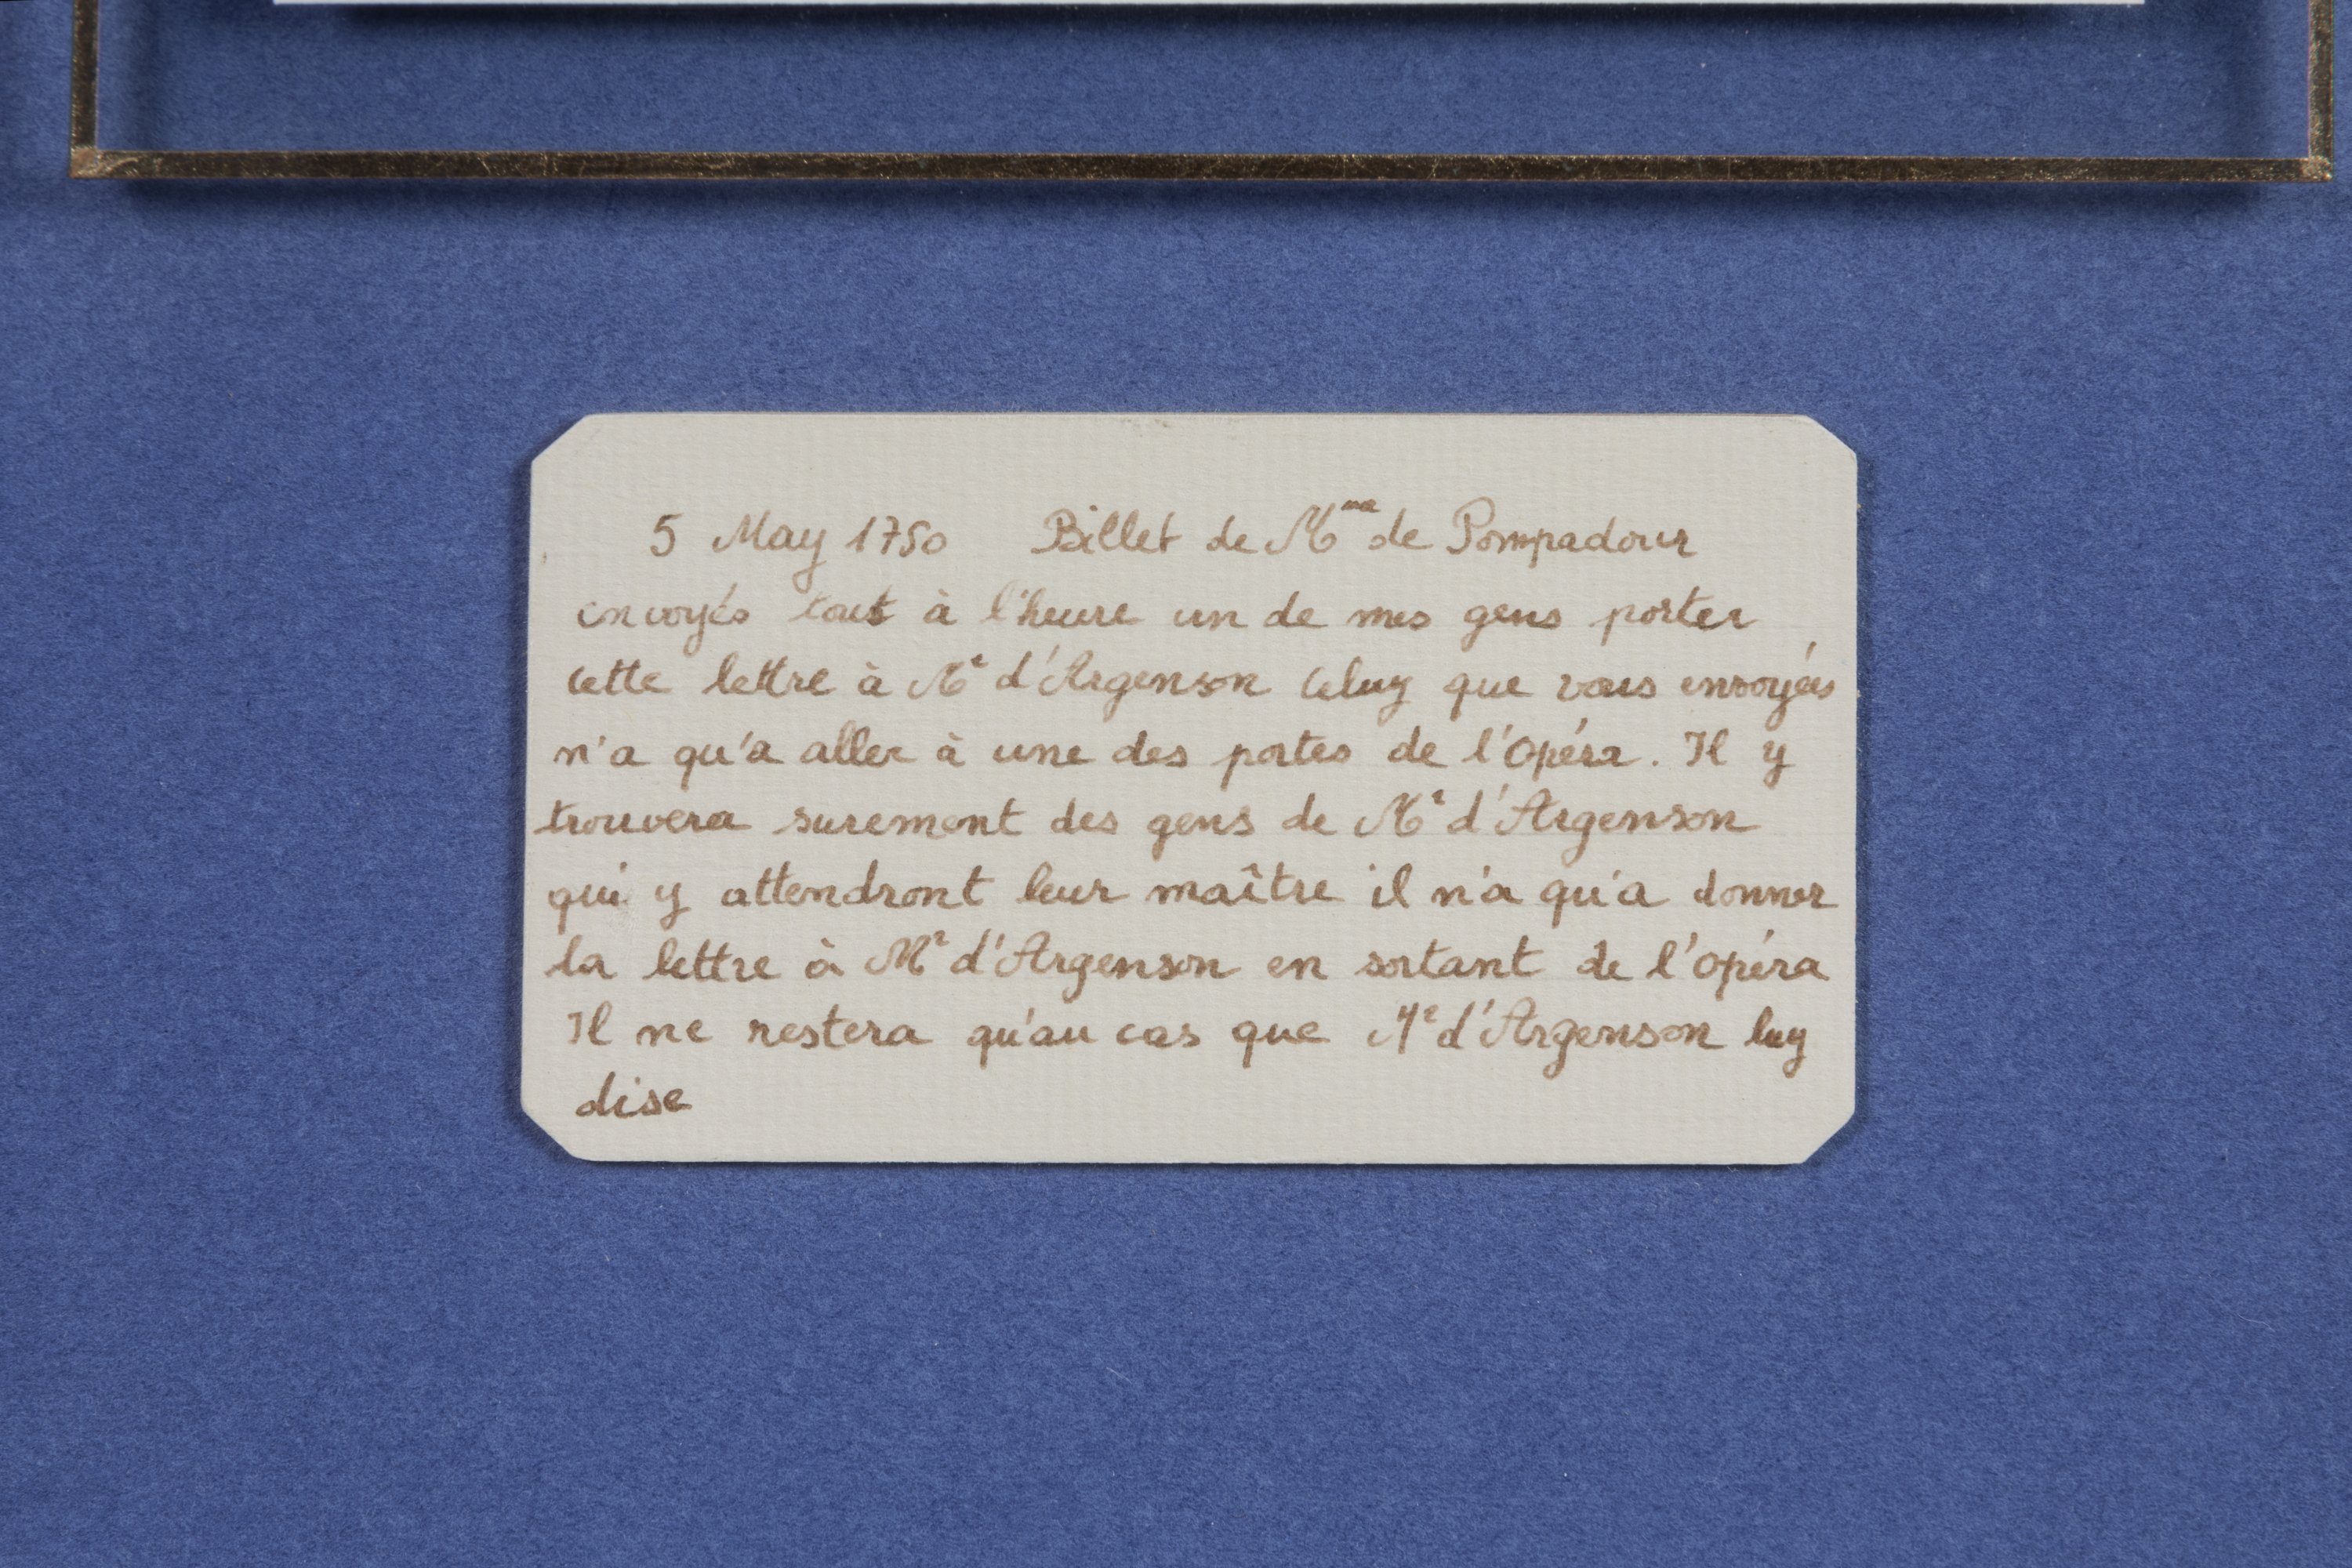 5 May 1750 Billet de Mme de Pompadour
envoyés tout à l'heure un de mes gens porter
cette lettre à Mr d'Argenson Celuy que vous envoyés
n'a qu'a aller à une des portes de l'Opéra. Il y
trouvera surement des gens de Mr d'Argenson
qui y attendront leur maître il n'a qu'a donner
la lettre à Mr d'Argenson en sortant de l'Opéra
Il ne restera qu'au cas que Mr d'Argenson luy
dise